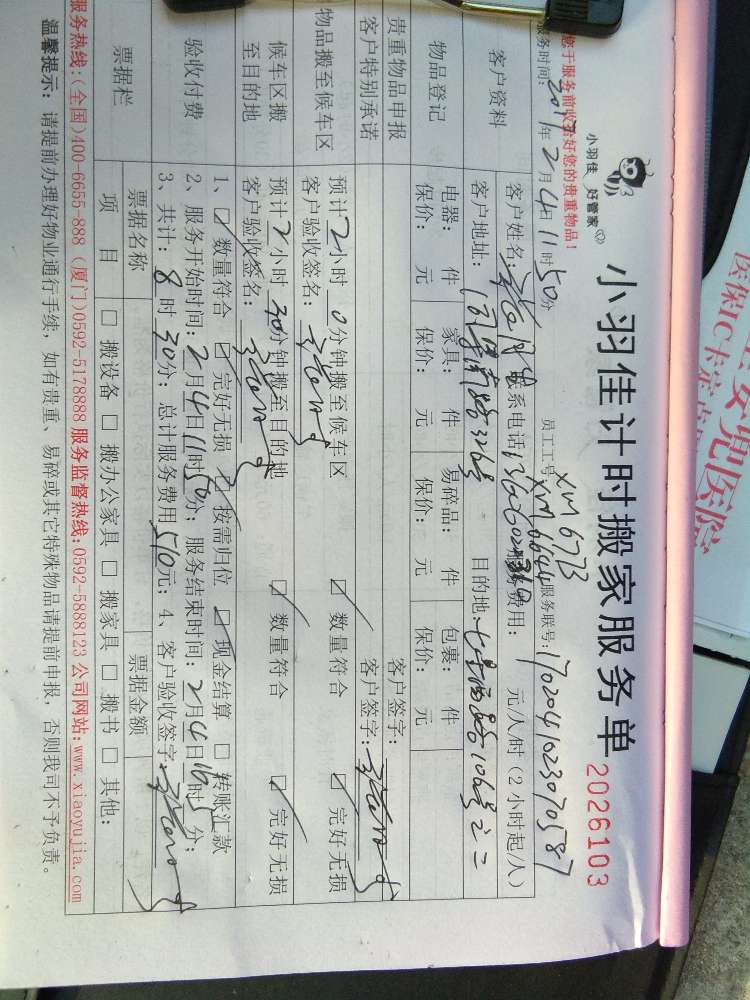 小羽佳 好管家
小羽佳计时搬家服务单
2026103
您于服务前收拾好您的贵重物品!
员工工号: XM6773
XM6644
服务联号: 1702041023070587
服务时间: 2017年2月4日11时50分
客户资料
客户姓名:
联系电话
服务费用: 元/人/时(2小时起/人)
客户地址:
目的地:
物品登记
电器: 件 家具: 件 易碎品: 件 包裹: 件
保价: 元 保价: 元 保价: 元 保价: 元
贵重物品申报
客户签字:
客户特别承诺
客户签字:
物品搬至候车区
预计2小时0分钟搬至候车区 ☑ 数量符合 ☑ 完好无损
客户验收签名:
候车区搬至目的地
预计2小时30分钟搬至目的地 ☑ 数量符合 ☑ 完好无损
客户验收签名:
验收付费
1、☑ 数量符合 ☑ 完好无损 ☑ 按需归位 ☑ 现金结算 □ 转账汇款
2、服务开始时间: 2月4日11时50分; 服务结束时间: 2月4日16时5分;
3、共计: 8时30分; 总计服务费用510元; 4、客户验收签字:
票据栏
票据名称 票据金额
项 目 □ 搬设备 □ 搬办公家具 □ 搬家具 □ 搬书 □ 其他:
服务热线:(全国)400-6655-888 (厦门)0592-5178888 服务监督热线:0592-5888123 公司网站:www.xiaoyujia.com
温馨提示: 请提前办理好物业通行手续, 如有贵重、易碎或其它特殊物品请提前申报, 否则我司不予负责。
儿医院
医保IC卡定点